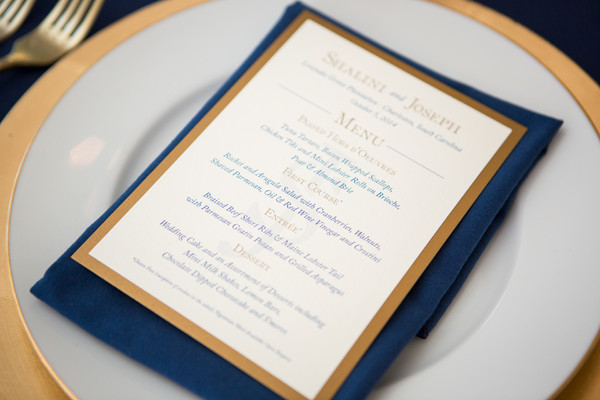 Shalini and Joseph
Plantation - Charleston, South Carolina
October 5, 2014
Menu
Passed Hors d'Oeuvres
Tuna Tartare, Bacon Wrapped Scallops,
Chicken Tika and Mini Lobster Rolls on Brioche,
Pear & Almond Brie
First Course*
Rocket and Arugula Salad with Cranberries, Walnuts,
Shaved Parmesan, Oil & Red Wine Vinegar and Crostini
Entrée*
Braised Beef Short Ribs & Maine Lobster Tail
with Parmesan Gratin Potato and Grilled Asparagus
Dessert
Wedding Cake and an Assortment of Desserts including
Mini Milk Shakes, Lemon Bars,
Chocolate Dipped Cheesecake and S'mores